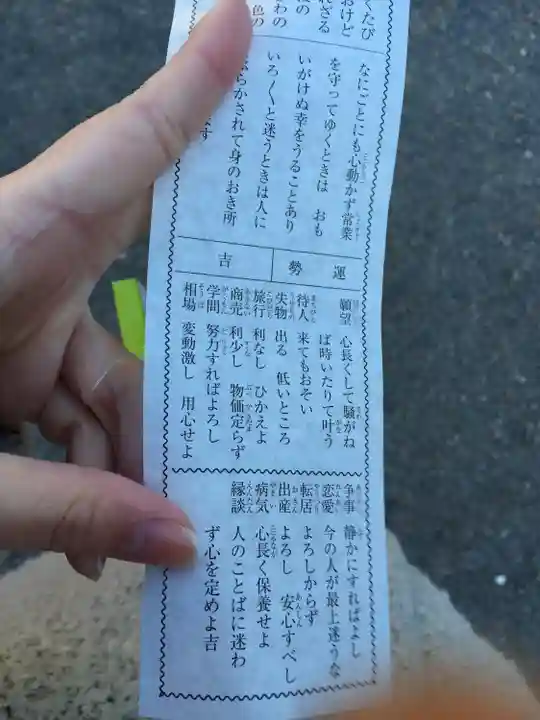 くたび
おけど
れざる
わの
色の
なにごとにも心動かず常業
を守ってゆくときは　おも
いがけぬ幸をうることあり
いろ〳〵と迷うときは人に
らかされて身のおき所
ます
運勢　吉
願望　心長くして騒がね
ば時いたりて叶う
待人　来てもおそい
失物　出る　低いところ
旅行　利なし　ひかえよ
商売　利少し　物価定らず
学問　努力すればよろし
相場　変動激し　用心せよ
争事　静かにすればよし
恋愛　今の人が最上迷うな
転居　よろしからず
出産　よろし　安心すべし
病気　心長く保養せよ
縁談　人のことばに迷わ
ず心を定めよ吉